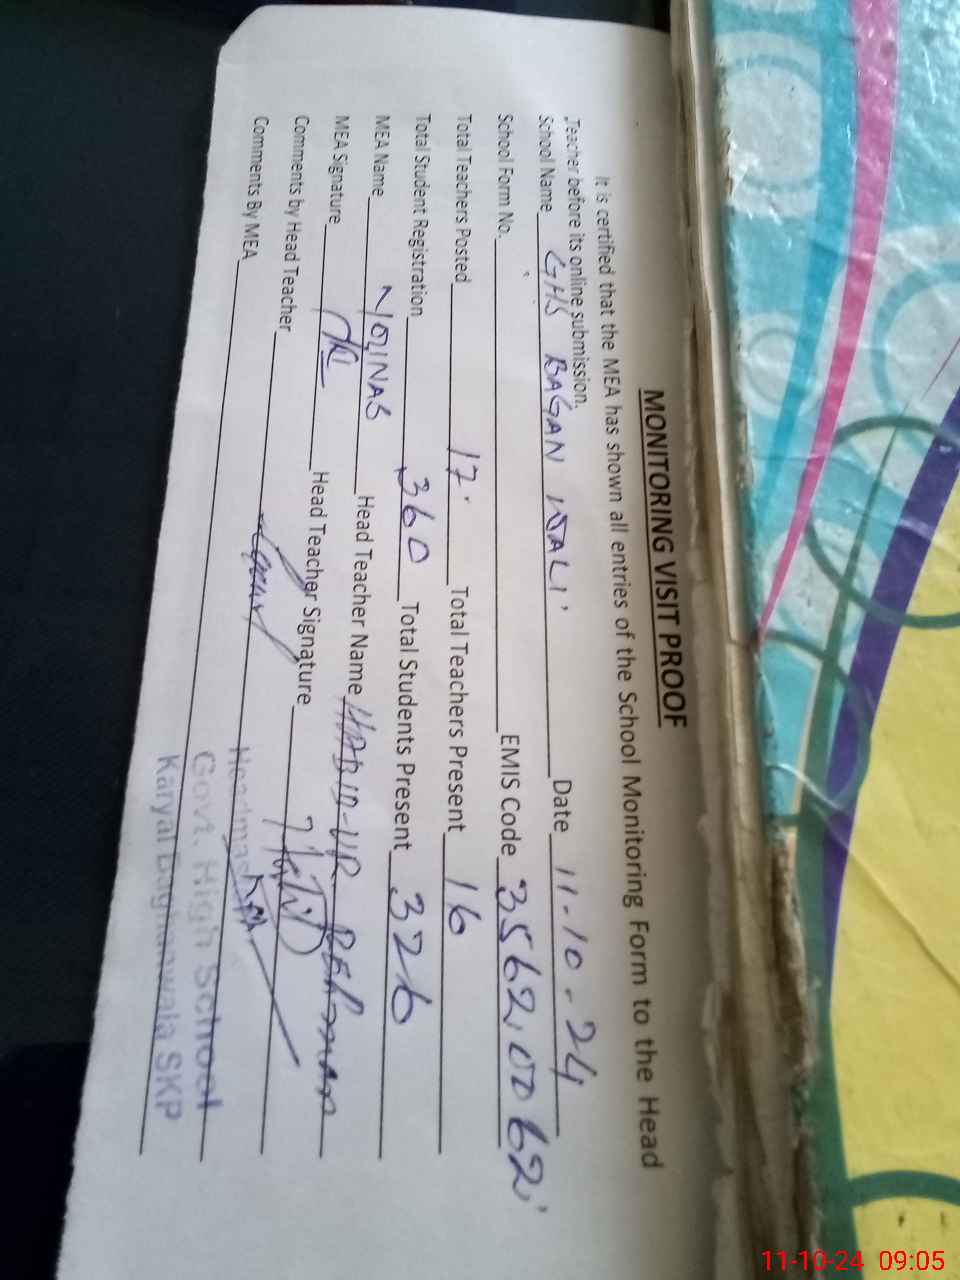 MONITORING VISIT PROOF
It is certified that the MEA has shown all entries of the School Monitoring Form to the Head
Teacher before its online submission.
School Name GHS BAGAN WALI Date 11-10-24
School Form No. EMIS Code 35620062
Total Teachers Posted 17 Total Teachers Present 16
Total Student Registration 360 Total Students Present 326
MEA Name Head Teacher Name HABIB-UR REHMAN
MEA Signature Head Teacher Signature
Comments by Head Teacher
Comments By MEA
Headmaster
Govt. High School
Karyal Baghanwala SKP
11-10-24 09:05